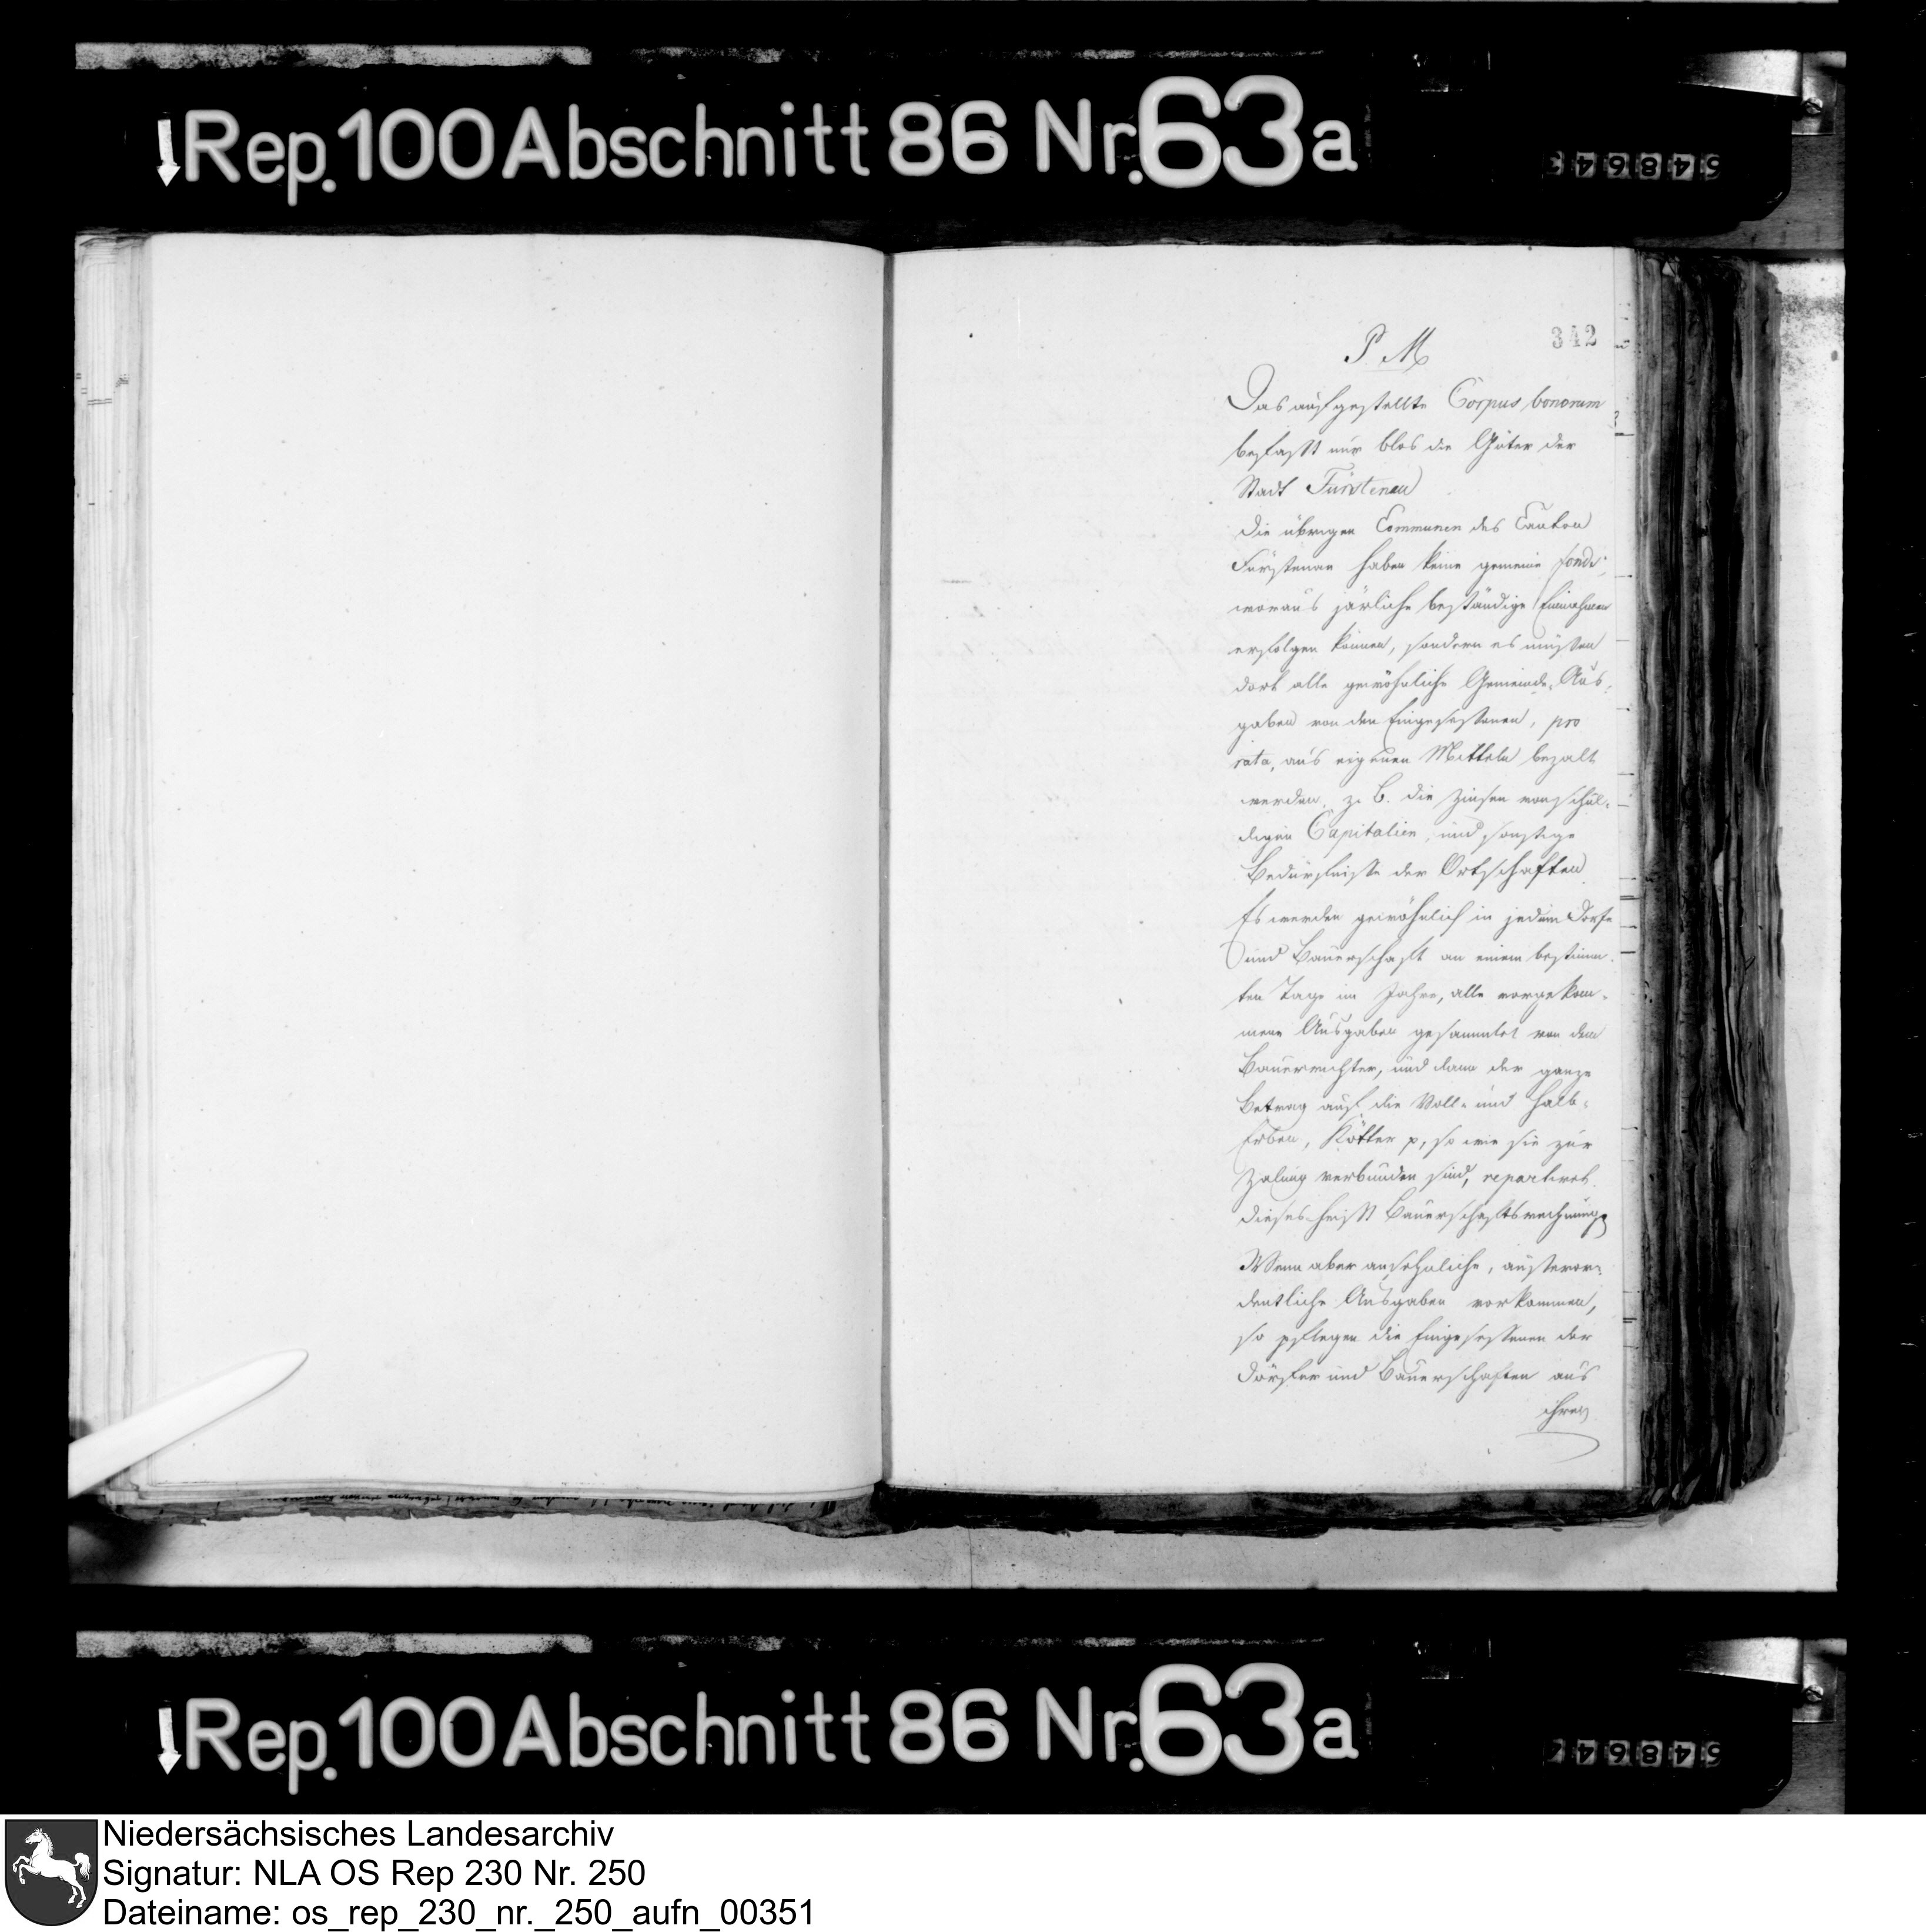 Rep. 100 Abschnitt 86 Nr. 63a
342
P. M.
Das aufgestellte Corpus bonorum
befaßt nur blos die Güter der
Stadt Fürstenau
Die übrigen Communen des Canton
Fürstenau haben keine gemeine fonds,
woraus järliche beständige Einnahmen
erfolgen können, sondern es müßen
dort alle gewöhnliche Gemeinde-Aus-
gaben von den Eingeseßenen, pro
rata, aus eigenen Mitteln bezalt
werden, z. B. die Zinsen von schul-
digen Capitalien, und sonstige
Bedürfniße der Ortschaften
Es werden gewöhnlich in jedem Dorfe
und Bauerschaft an einem bestimm-
ten Tage im Jahre, alle vorgekom-
mene Ausgaben gesammlet von dem
Bauerrichter, und dann der ganze
Betrag auf die Voll- und Halb-
Erben, Kötter p, so wie sie zur
Zalung verbunden sind, repartiret.
dieses heißt Bauerschaftsrechnung
Wenn aber ansehnliche, außeror-
dentliche Ausgaben vorkommen,
so pflegen die Eingeseßenen der
Dörfer und Bauerschaften aus
ihren
Rep. 100 Abschnitt 86 Nr. 63a
Niedersächsisches Landesarchiv
Signatur: NLA OS Rep 230 Nr. 250
Dateiname: os_rep_230_nr._250_aufn_00351